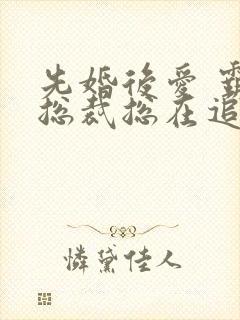 先婚後愛
總裁總在追
憐黛佳人